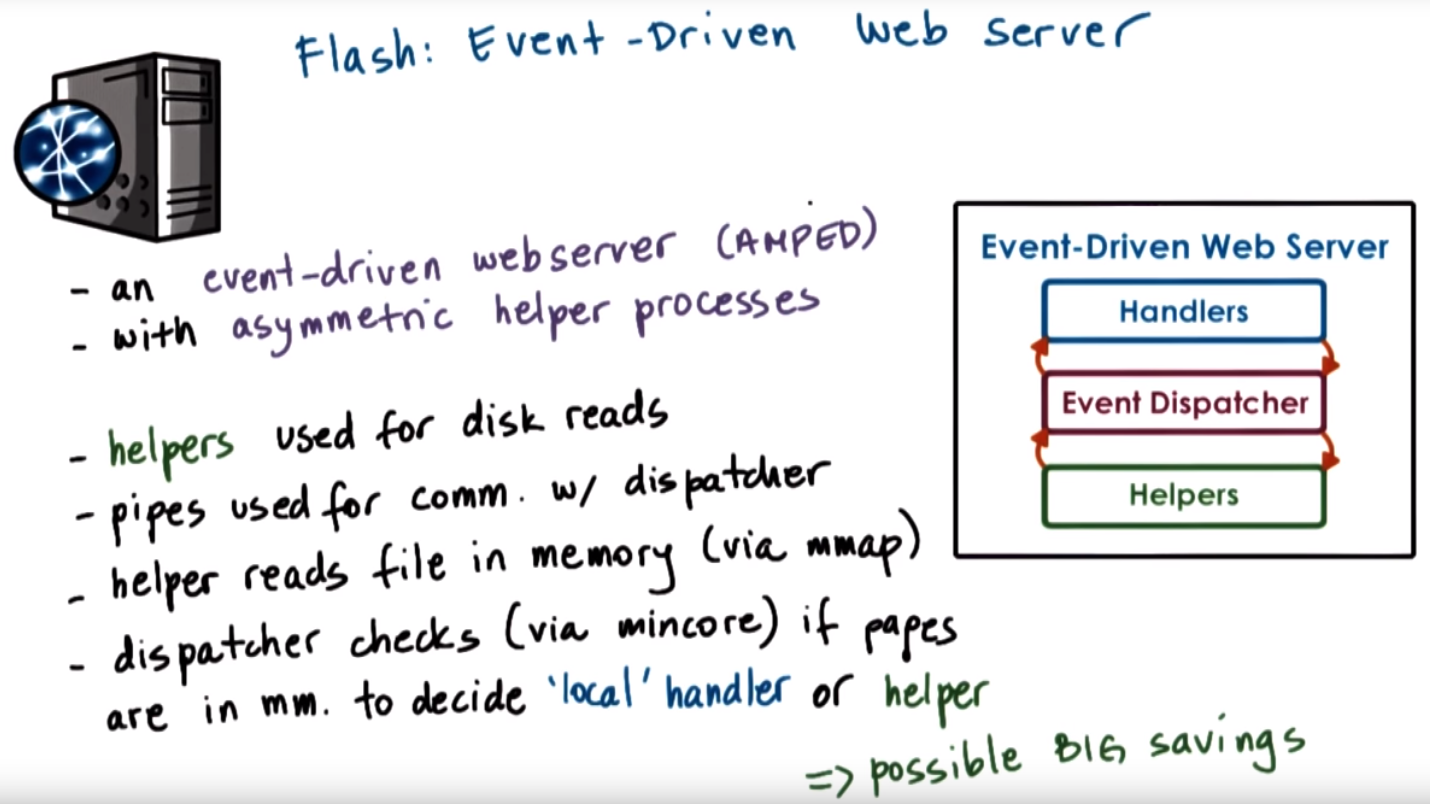 Flash: Event-Driven Web Server
- an event-driven webserver (AMPED)
- with asymmetric helper processes
- helpers used for disk reads
- pipes used for comm. w/ dispatcher
- helper reads file in memory (via mmap)
- dispatcher checks (via mincore) if papes
are in mm. to decide 'local' handler or helper
=> possible BIG savings
Event-Driven Web Server
Handlers
Event Dispatcher
Helpers